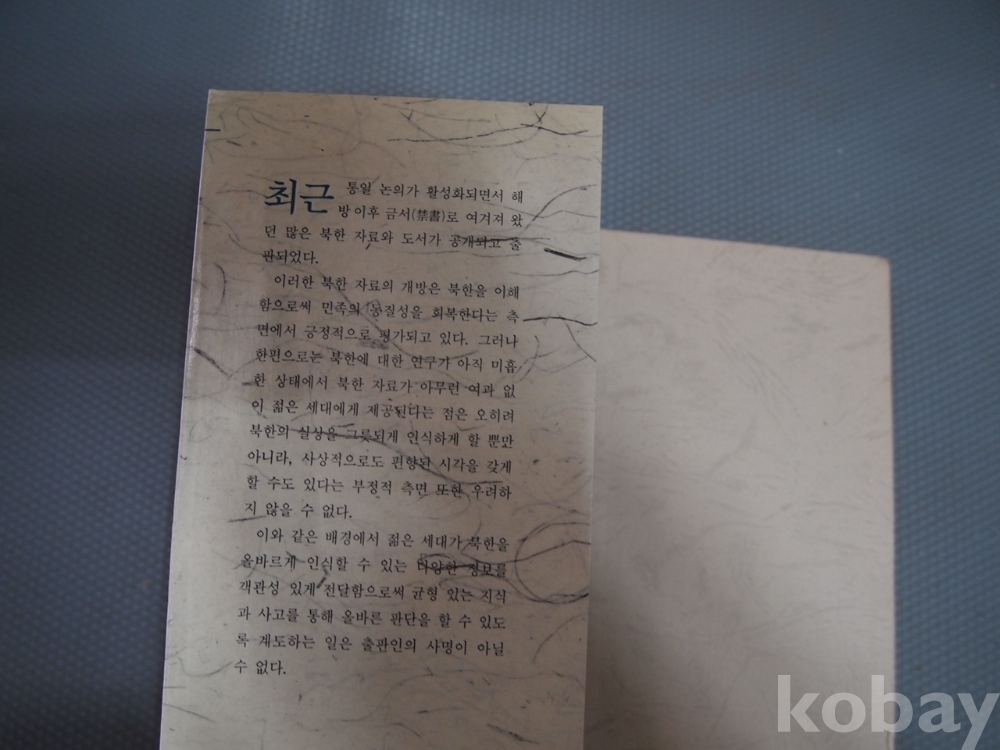 최근 통일 논의가 활성화되면서 해
방 이후 금서(禁書)로 여겨져 왔
던 많은 북한 자료와 도서가 공개되고 출
판되었다.
이러한 북한 자료의 개방은 북한을 이해
함으로써 민족의 동질성을 회복한다는 측
면에서 긍정적으로 평가되고 있다. 그러나
한편으로는 북한에 대한 연구가 아직 미흡
한 상태에서 북한 자료가 아무런 여과 없
이 젊은 세대에게 제공된다는 점은 오히려
북한의 실상을 그릇되게 인식하게 할 뿐만
아니라, 사상적으로도 편향된 시각을 갖게
할 수도 있다는 부정적 측면 또한 우려하
지 않을 수 없다.
이와 같은 배경에서 젊은 세대가 북한을
올바르게 인식할 수 있는 다양한 정보를
객관성 있게 전달함으로써 균형 있는 지식
과 사고를 통해 올바른 판단을 할 수 있도
록 계도하는 일은 출판인의 사명이 아닐
수 없다.
kobay